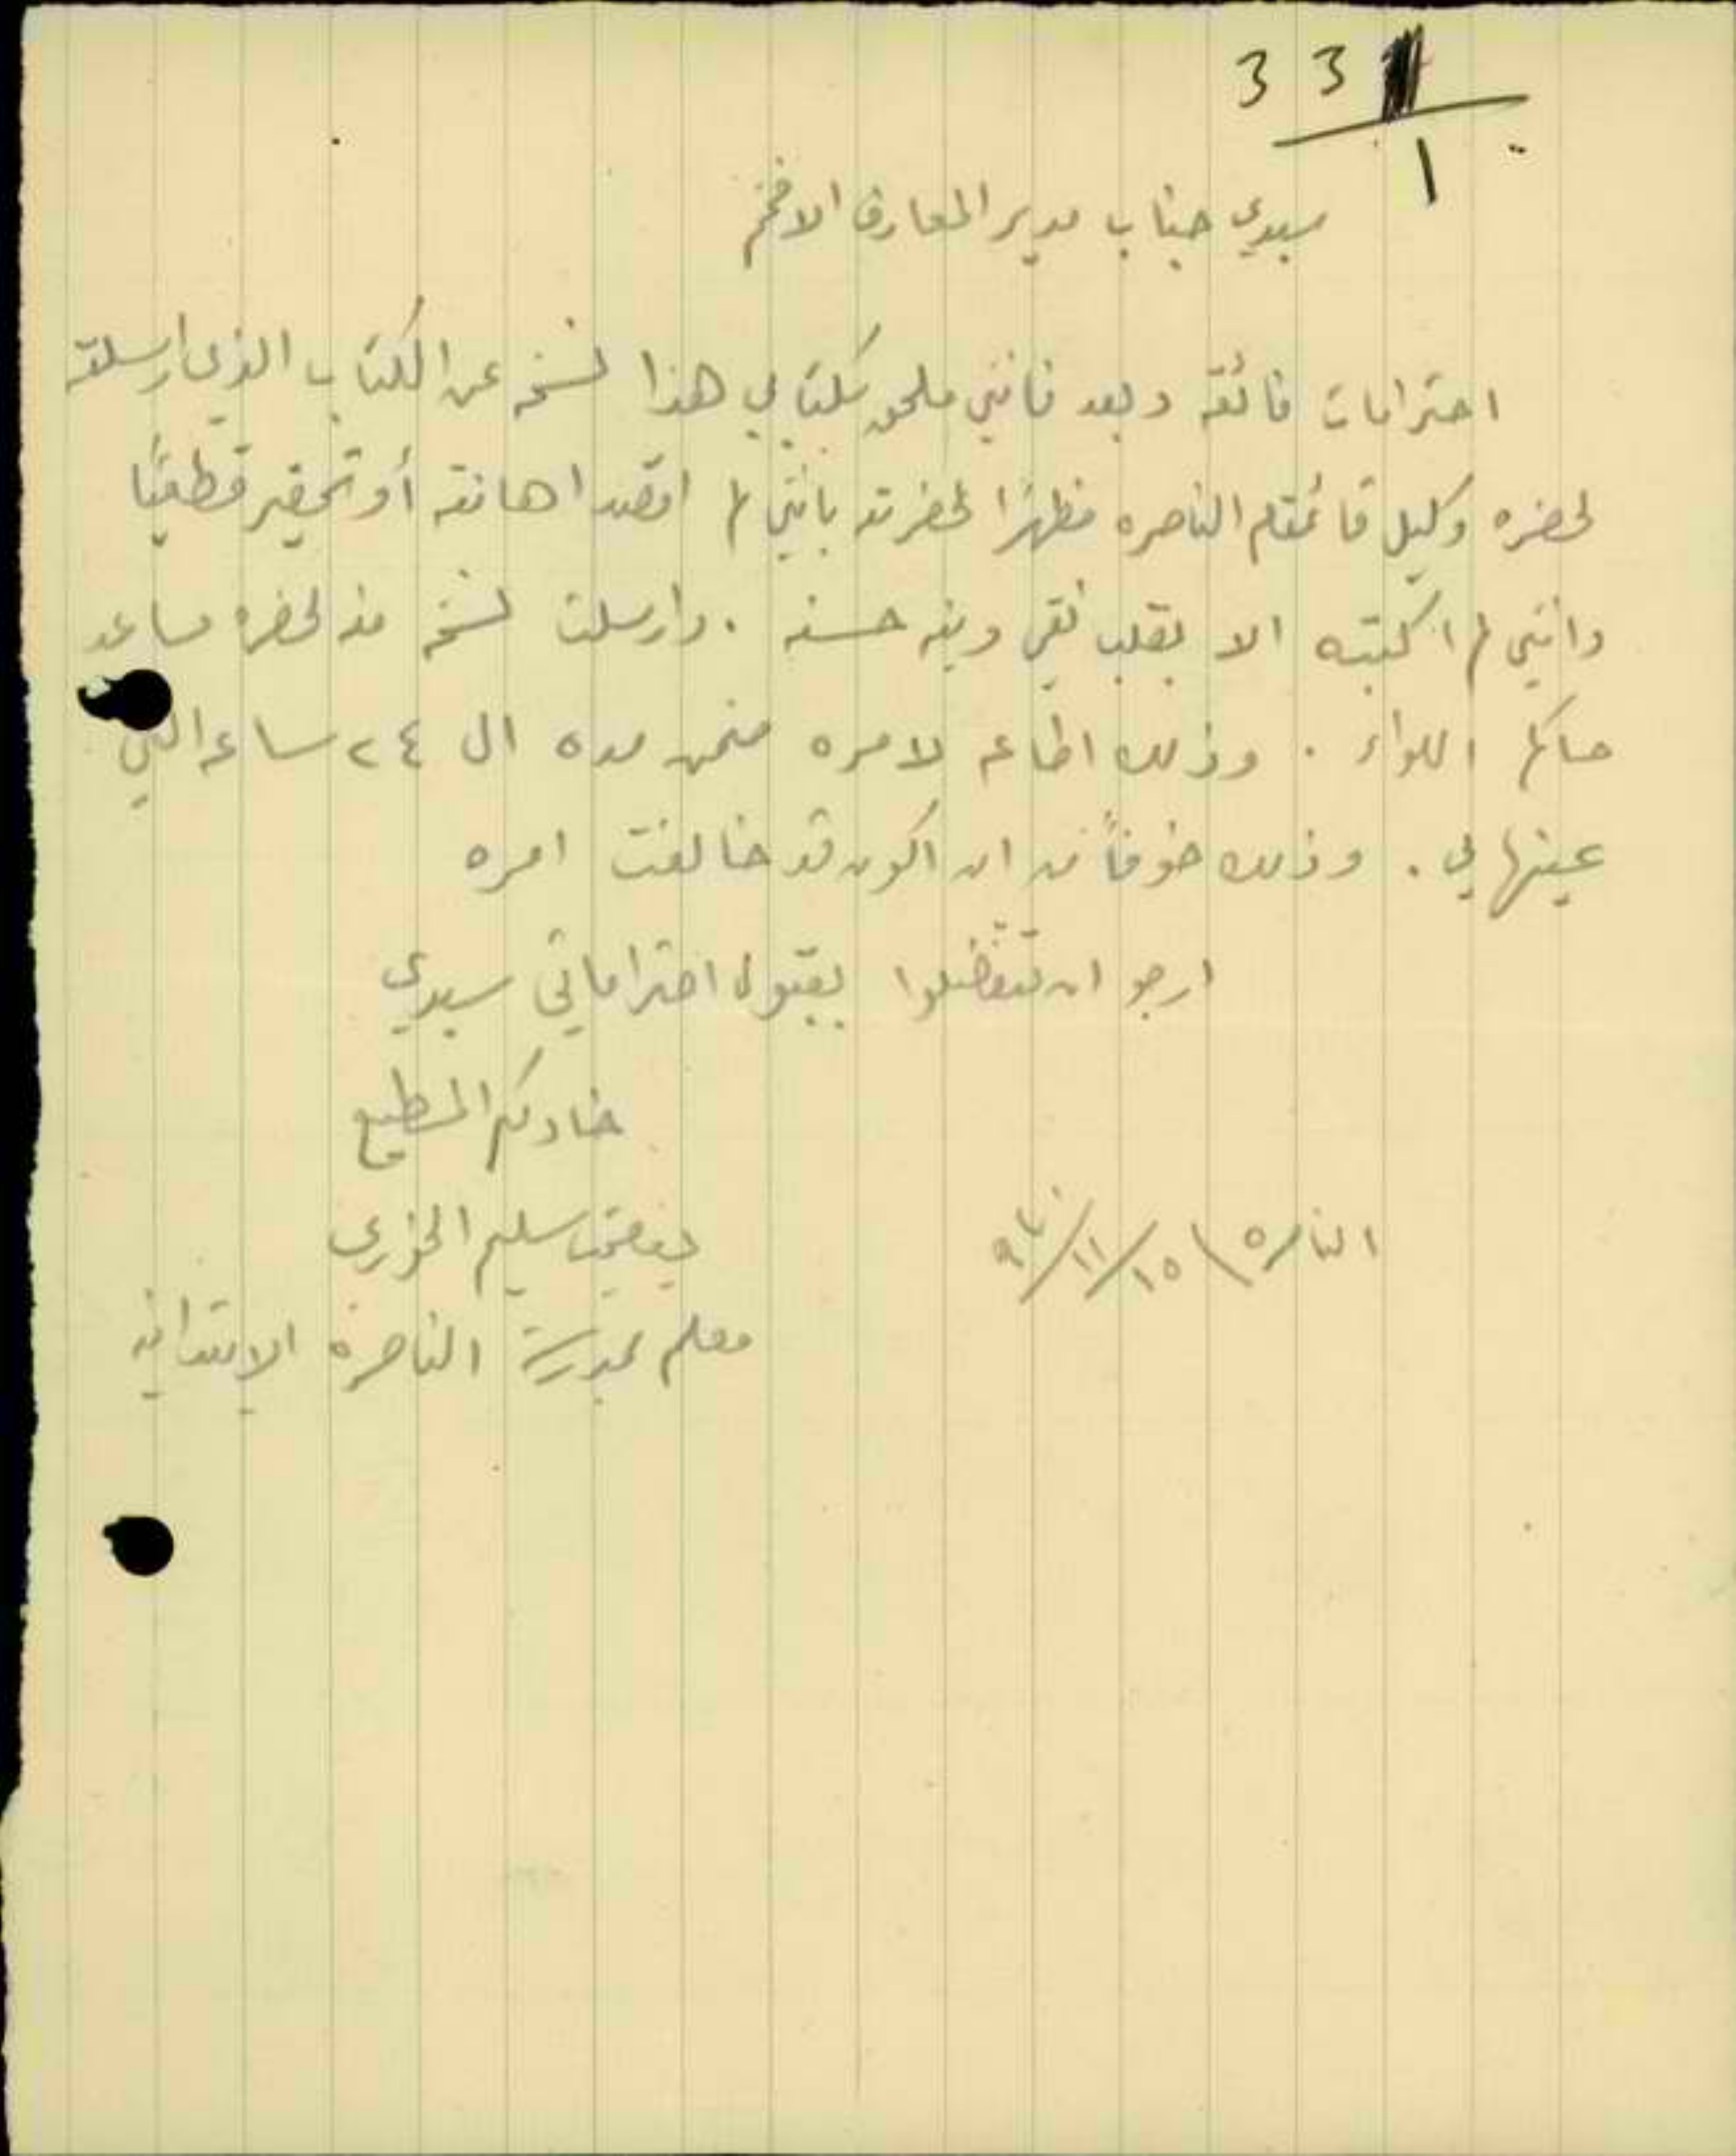 33
1
سيدي جناب مدير المعارف الافخم
احترامات فائقه وبعد فانني ملحق بكتابي هذا نسخه عن الكتاب الذي ارسلته
لحضره وكيل قائمقام الناصره مظهرًا لحضرته بانني لم اقصد اهانته أو تحقيره قطعيًا
وانني لم اكتبه الا بقلب نقي ونيه حسنه . وارسلت نسخه منه لحضره مساعد
حاكم اللواء . وذلك اطاعه لامره ضمن مده ال ٢٤ ساعه التي
عينها لي . وذلك خوفاً من ان اكون قد خالفت امره
ارجو ان تتفضلوا بقبول احتراماتي سيدي
خادمكم المطيع
سليم الخوري
الناصره ١٥/١١/
معلم بمدرسة الناصرة الابتدائيه